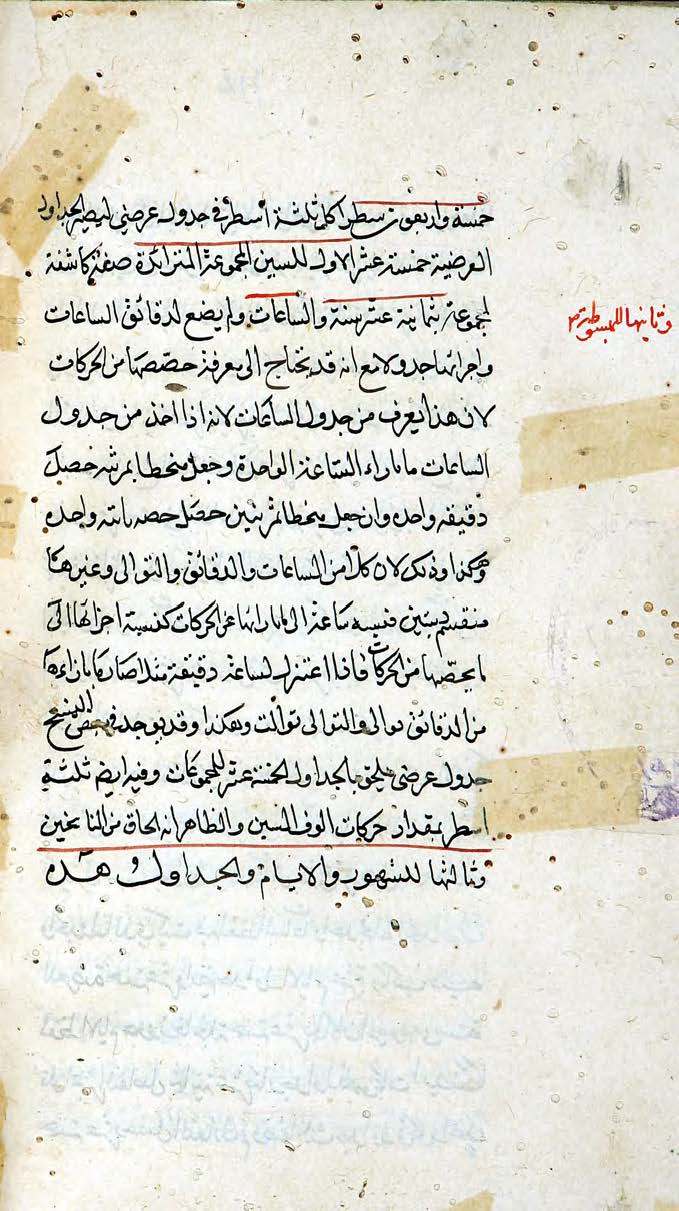 خمسة واربعون سطرا كل ثلثة أسطر في جدول عرضي ليصير الجداول
العرضية خمسة عشر الاول للسنين المجموعة المتزائدة صفة كاشفة
لمجموعة بثمانية عشر سنة والساعات ولم يضع لدقائق الساعات
واجزائها جدولا مع انه قد يحتاج الى معرفة حصصها من الحركات
لان هذا يعرف من جدول الساعات لانه اذا اخذ من جدول
الساعات ما بازاء الساعة الواحدة وجعل منحطا بمرتبه حصل
دقيقه واحده وان جعل منحطا بمرتبتين حصل حصه ثانيه واحده
وهكذا وذلك لان كلا من الساعات والدقائق والثوالى وغيرها
منقسم بستين فنسبه ساعة الى ما بازائها من الحركات كنسبة اجزائها الى
ما يخصها من الحركات فاذا اعتبرت لساعة دقيقة مثلا صار ما بازاءها
من الدقائق ثوالى والثوالى ثوالث وهكذا وقد يوجد في بعض النسخ
جدول عرضي ملحق بالجداول الخمسة عشر للمجموعات وفيه ايضا ثلثة
اسطر بمقدار حركات الوف السنين والظاهر انه الحاق من الناسخين
وثالثها للشهور والايام والجداول هذه
وثانيها للمبسوطة